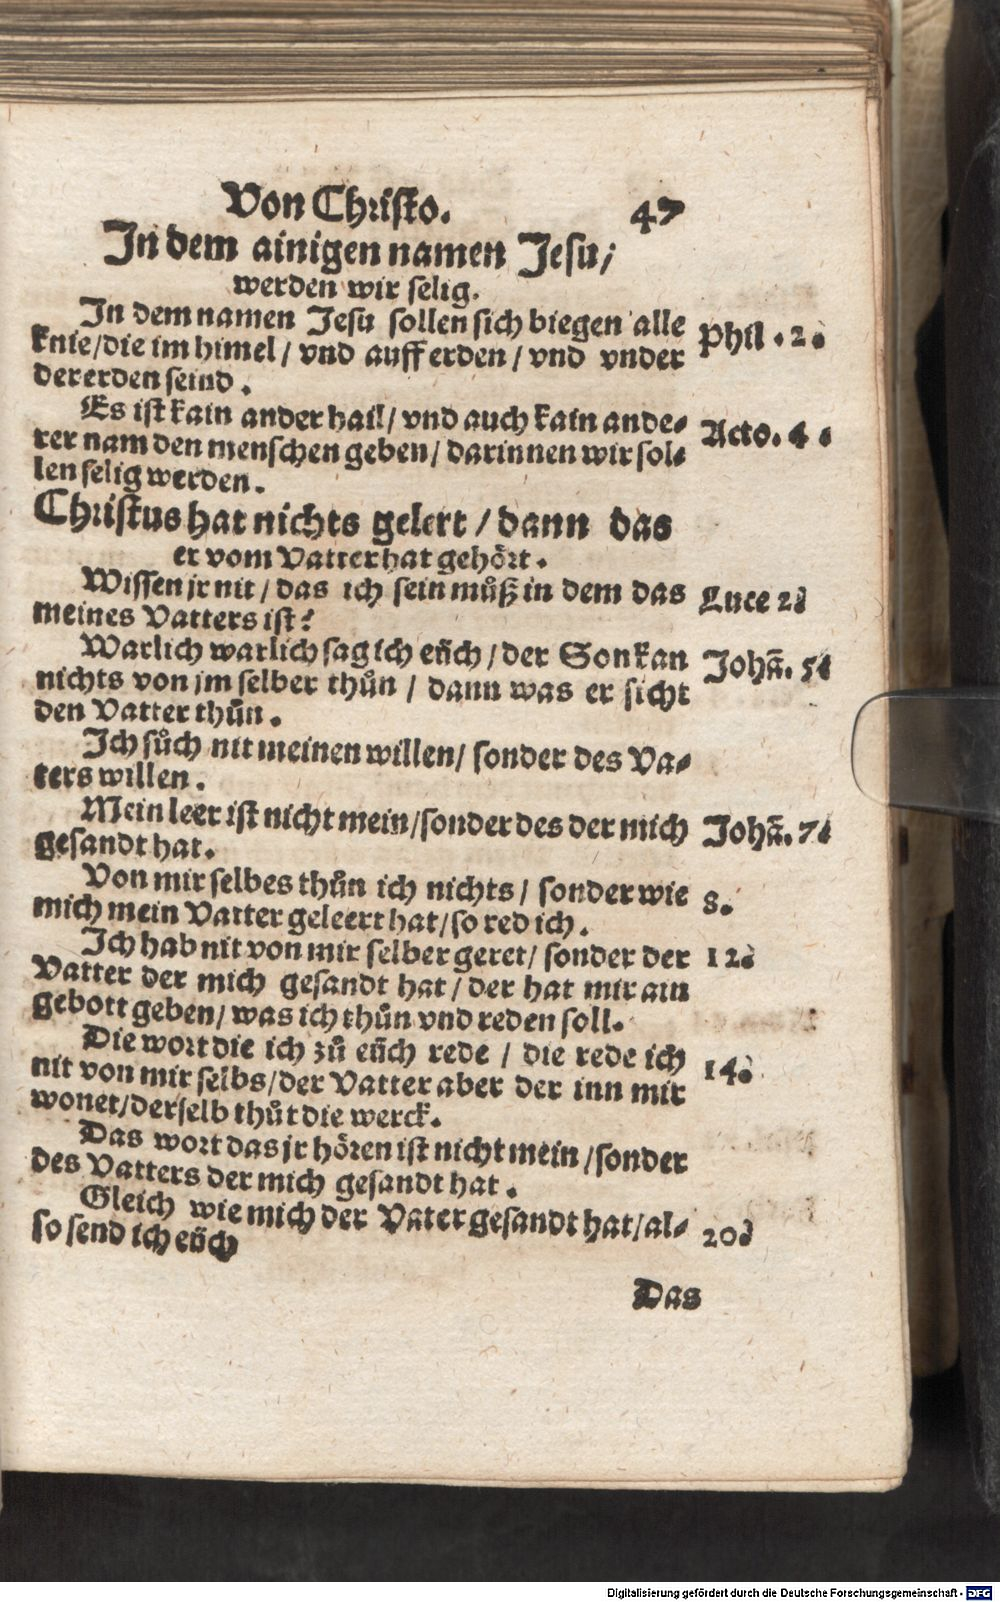 Von Christo. 47
In dem ainigen namen Jesu/
werden wir selig.
In dem namen Jesu sollen sich biegen alle Phil. 2.
knie/die im himel/ vnd auff erden/ vnd vnder
der erden seind.
Es ist kain ander hail/ vnd auch kain ande- Acto. 4.
rer nam den menschen geben/ darinnen wir sol-
len selig werden.
Christus hat nichts gelert/ dann das
er vom Vatter hat gehört.
Wissen jr nit/ das ich sein muͦß in dem das Luce 2.
meines Vatters ist?
Warlich warlich sag ich eüch/ der Son kan Johā. 5.
nichts von jm selber thuͦn/ dann was er sicht
den Vatter thuͦn.
Ich suͦch nit meinen willen/ sonder des Va-
ters willen.
Mein leer ist nicht mein/sonder des der mich Johā. 7.
gesandt hat.
Von mir selbes thuͦn ich nichts/ sonder wie 8.
mich mein Vatter geleert hat/so red ich.
Ich hab nit von mir selber geret/ sonder der 12.
Vatter der mich gesandt hat/ der hat mir ain
gebott geben/ was ich thuͦn vnd reden soll.
Die wort die ich zuͦ eüch rede/ die rede ich 14.
nit von mir selbs/der Vatter aber der inn mir
wonet/derselb thuͦt die werck.
Das wort das jr hören ist nicht mein/sonder
des Vatters der mich gesandt hat.
Gleich wie mich der Vater gesandt hat/al- 20.
so send ich eüch
Das
Digitalisierung gefördert durch die Deutsche Forschungsgemeinschaft - DFG